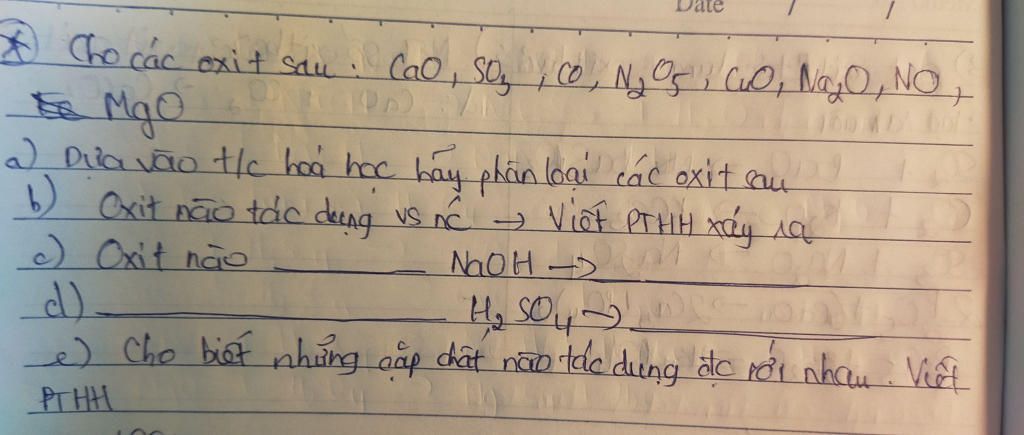 Date / /
* Cho các oxit sau : CaO, SO3, CO, N2O5, CuO, Na2O, NO,
MgO
a) Dựa vào t/c hoá học hãy phân loại các oxit sau
b) Oxit nào tác dụng vs nc → Viết PTHH xảy ra
c) Oxit nào ______ NaOH → ______
d) ______ H2SO4 → ______
e) Cho biết những cặp chất nào tác dụng đc với nhau. Viết
PTHH